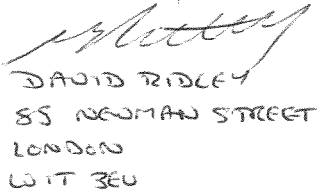 DAVID RIDLEY
85 NEWMAN STREET
LONDON
W1T 3EU